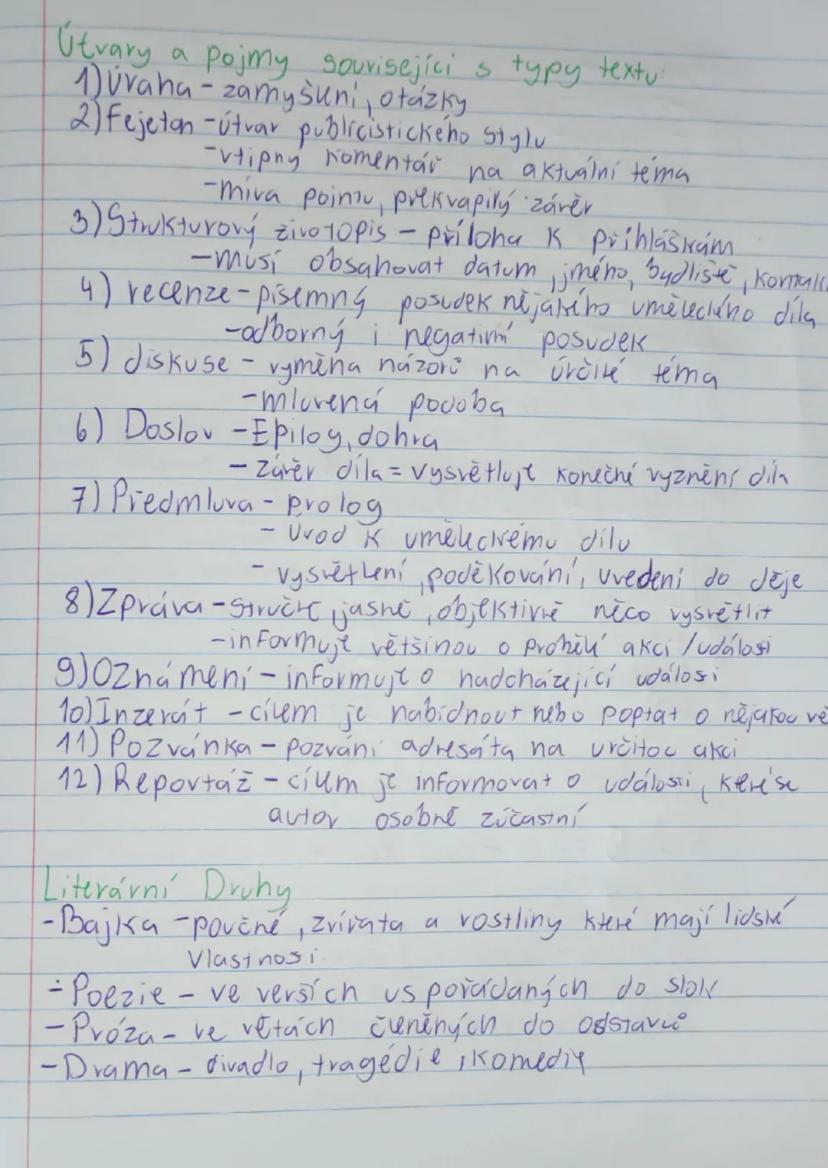 Útvary a pojmy související s typy textu:
1) Úvaha - zamyšlení, otázky
2) Fejeton - útvar publicistického stylu
- vtipný komentář na aktuální téma
- mívá pointu, překvapilý závěr
3) Strukturový životopis - příloha k přihláškám
- musí obsahovat datum, jméno, bydliště, kontakt
4) recenze - písemný posudek nějakého uměleckého díla
- odborný i negativní posudek
5) diskuse - vyměna názorů na určité téma
- mluvená podoba
6) Doslov - Epilog, dohra
- závěr díla = vysvětluje konečné vyznění díla
7) Předmluva - prolog
- úvod k uměleckému dílu
- vysvětlení, poděkování, uvedení do děje
8) Zpráva - stručně, jasně, objektivně něco vysvětlit
- informuje většinou o proběhlé akci / událosi
9) Oznámení - informuje o nadcházející událosi
10) Inzerát - cílem je nabídnout nebo poptat o nějakou vě
11) Pozvánka - pozvání adresáta na určitou akci
12) Reportáž - cílem je informovat o události, které se
autor osobně zúčastní
Literární Druhy
- Bajka - poučné, zvířata a rostliny které mají lidské
vlastnosi.
- Poezie - ve verších uspořádaných do slok
- Próza - ve větách členěných do odstavců
- Drama - divadlo, tragédie, komedie